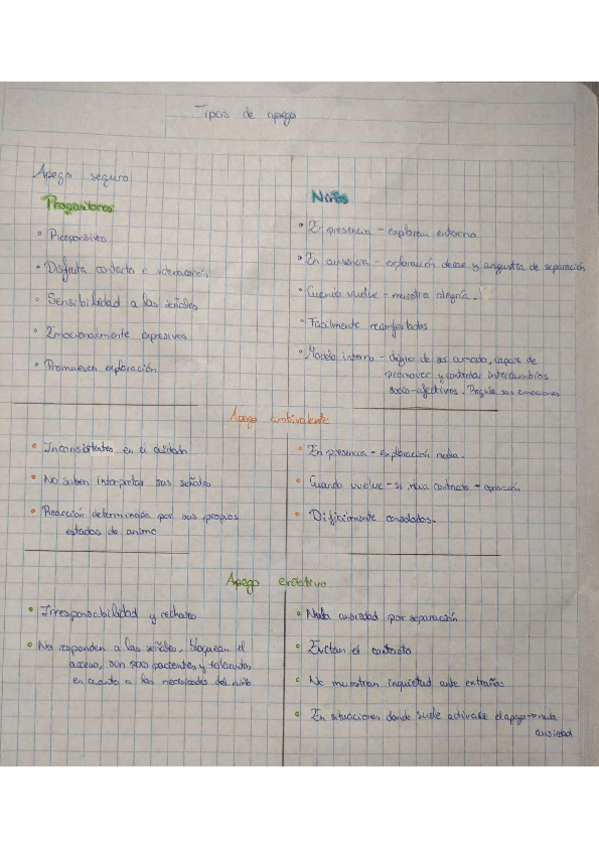 Tipos de apego
Apego seguro
Progenitores
• Responsivo
• Disfruta contacto e interacción
• Sensibilidad a las señales
• Emocionalmente expresivos
• Promueven exploración
Niños
• En presencia - exploran entorno
• En ausencia - exploración decae y angustia de separación
• Cuando vuelve - muestra alegría.
• Fácilmente reconfortados
• Modelo interno - digno de ser amado, capaz de
promover y controlar intercambios
socio-afectivos. Regula sus emociones
Apego ambivalente
• Inconsistentes en el cuidado
• No saben interpretar sus señales
• Reacción determinada por sus propios
estados de animo
• En presencia - exploración nula.
• Cuando vuelve - si contacto -
• Difícilmente consolados.
Apego evitativo
• Irresponsabilidad y rechazo
• No responden a las señales, bloquean el
acceso, son poco pacientes y tolerantes
en cuanto a las necesidades del niño
• Nula ansiedad por separación
• Evitan el contacto
• No muestran inquietud ante extraños
• En situaciones donde suele activarse el apego → nula
ansiedad